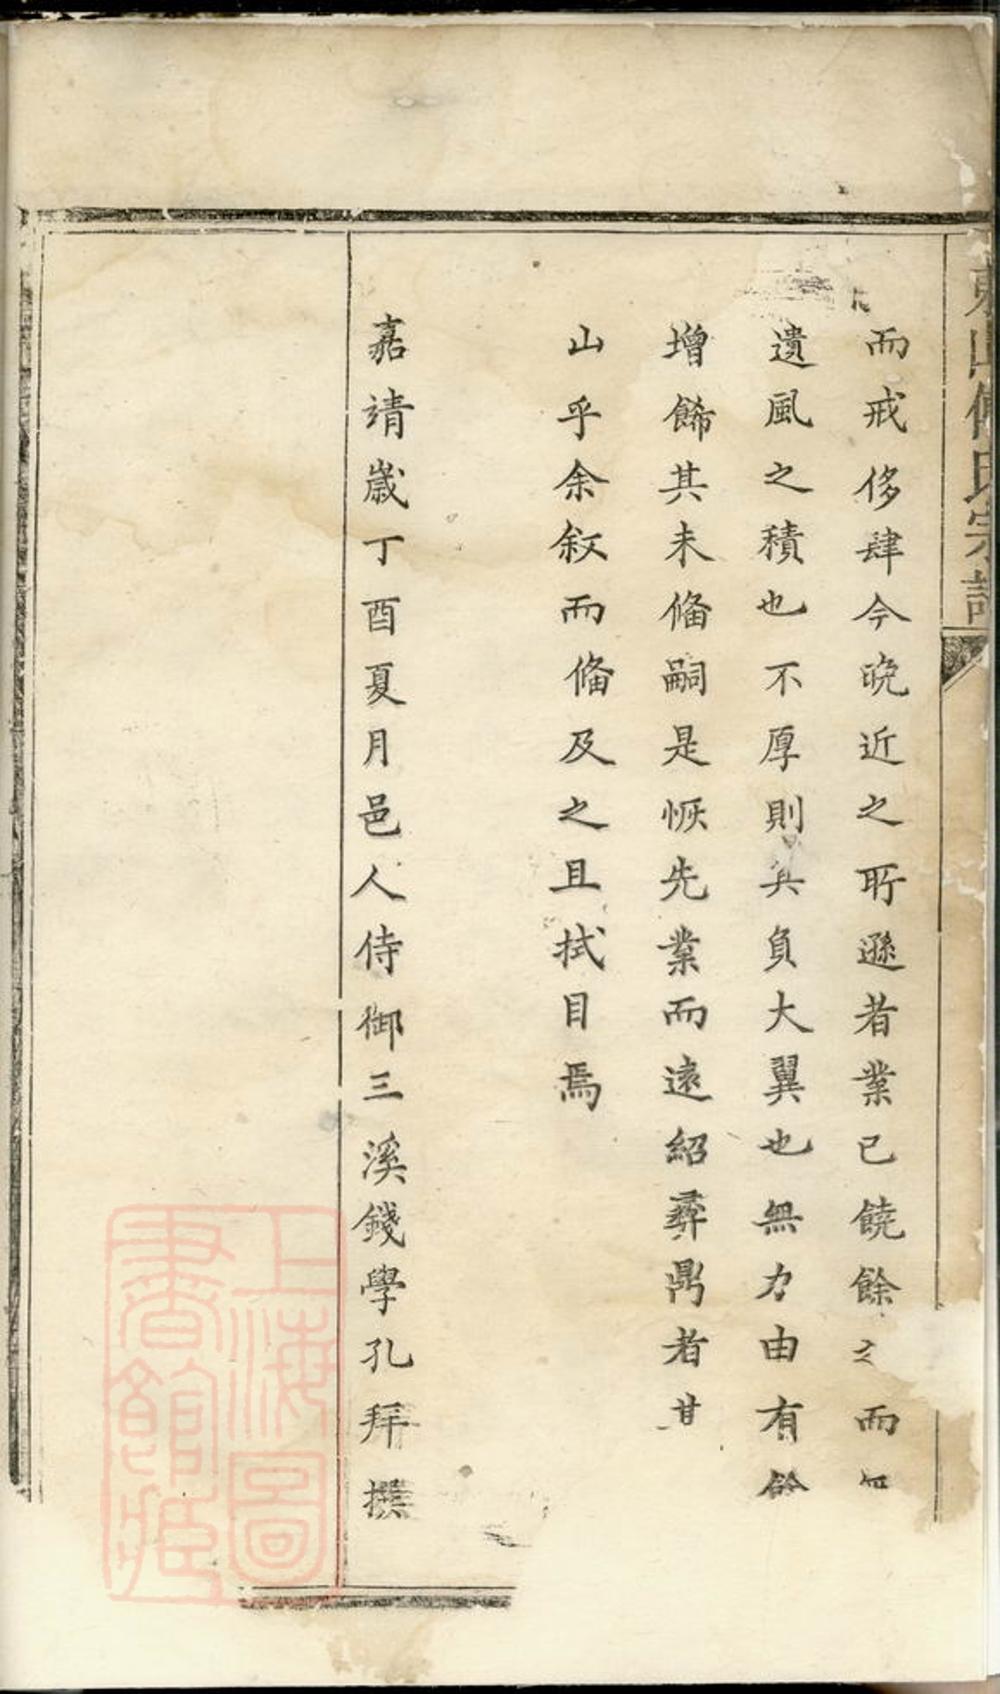 而戒侈肆今晚近之所遜者業已饒餘之而
遺風之積也不厚則其負大翼也無力由有餘
增餙其未俻嗣是恢先業而遠紹彞鼎者甘
山乎余敘而俻及之且拭目焉
嘉靖歲丁酉夏月邑人侍御三溪錢學孔拜撰
氏宗譜
上海圖書館藏